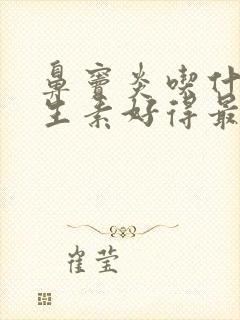 鼻窦炎喫什
生素好得最
崔莹